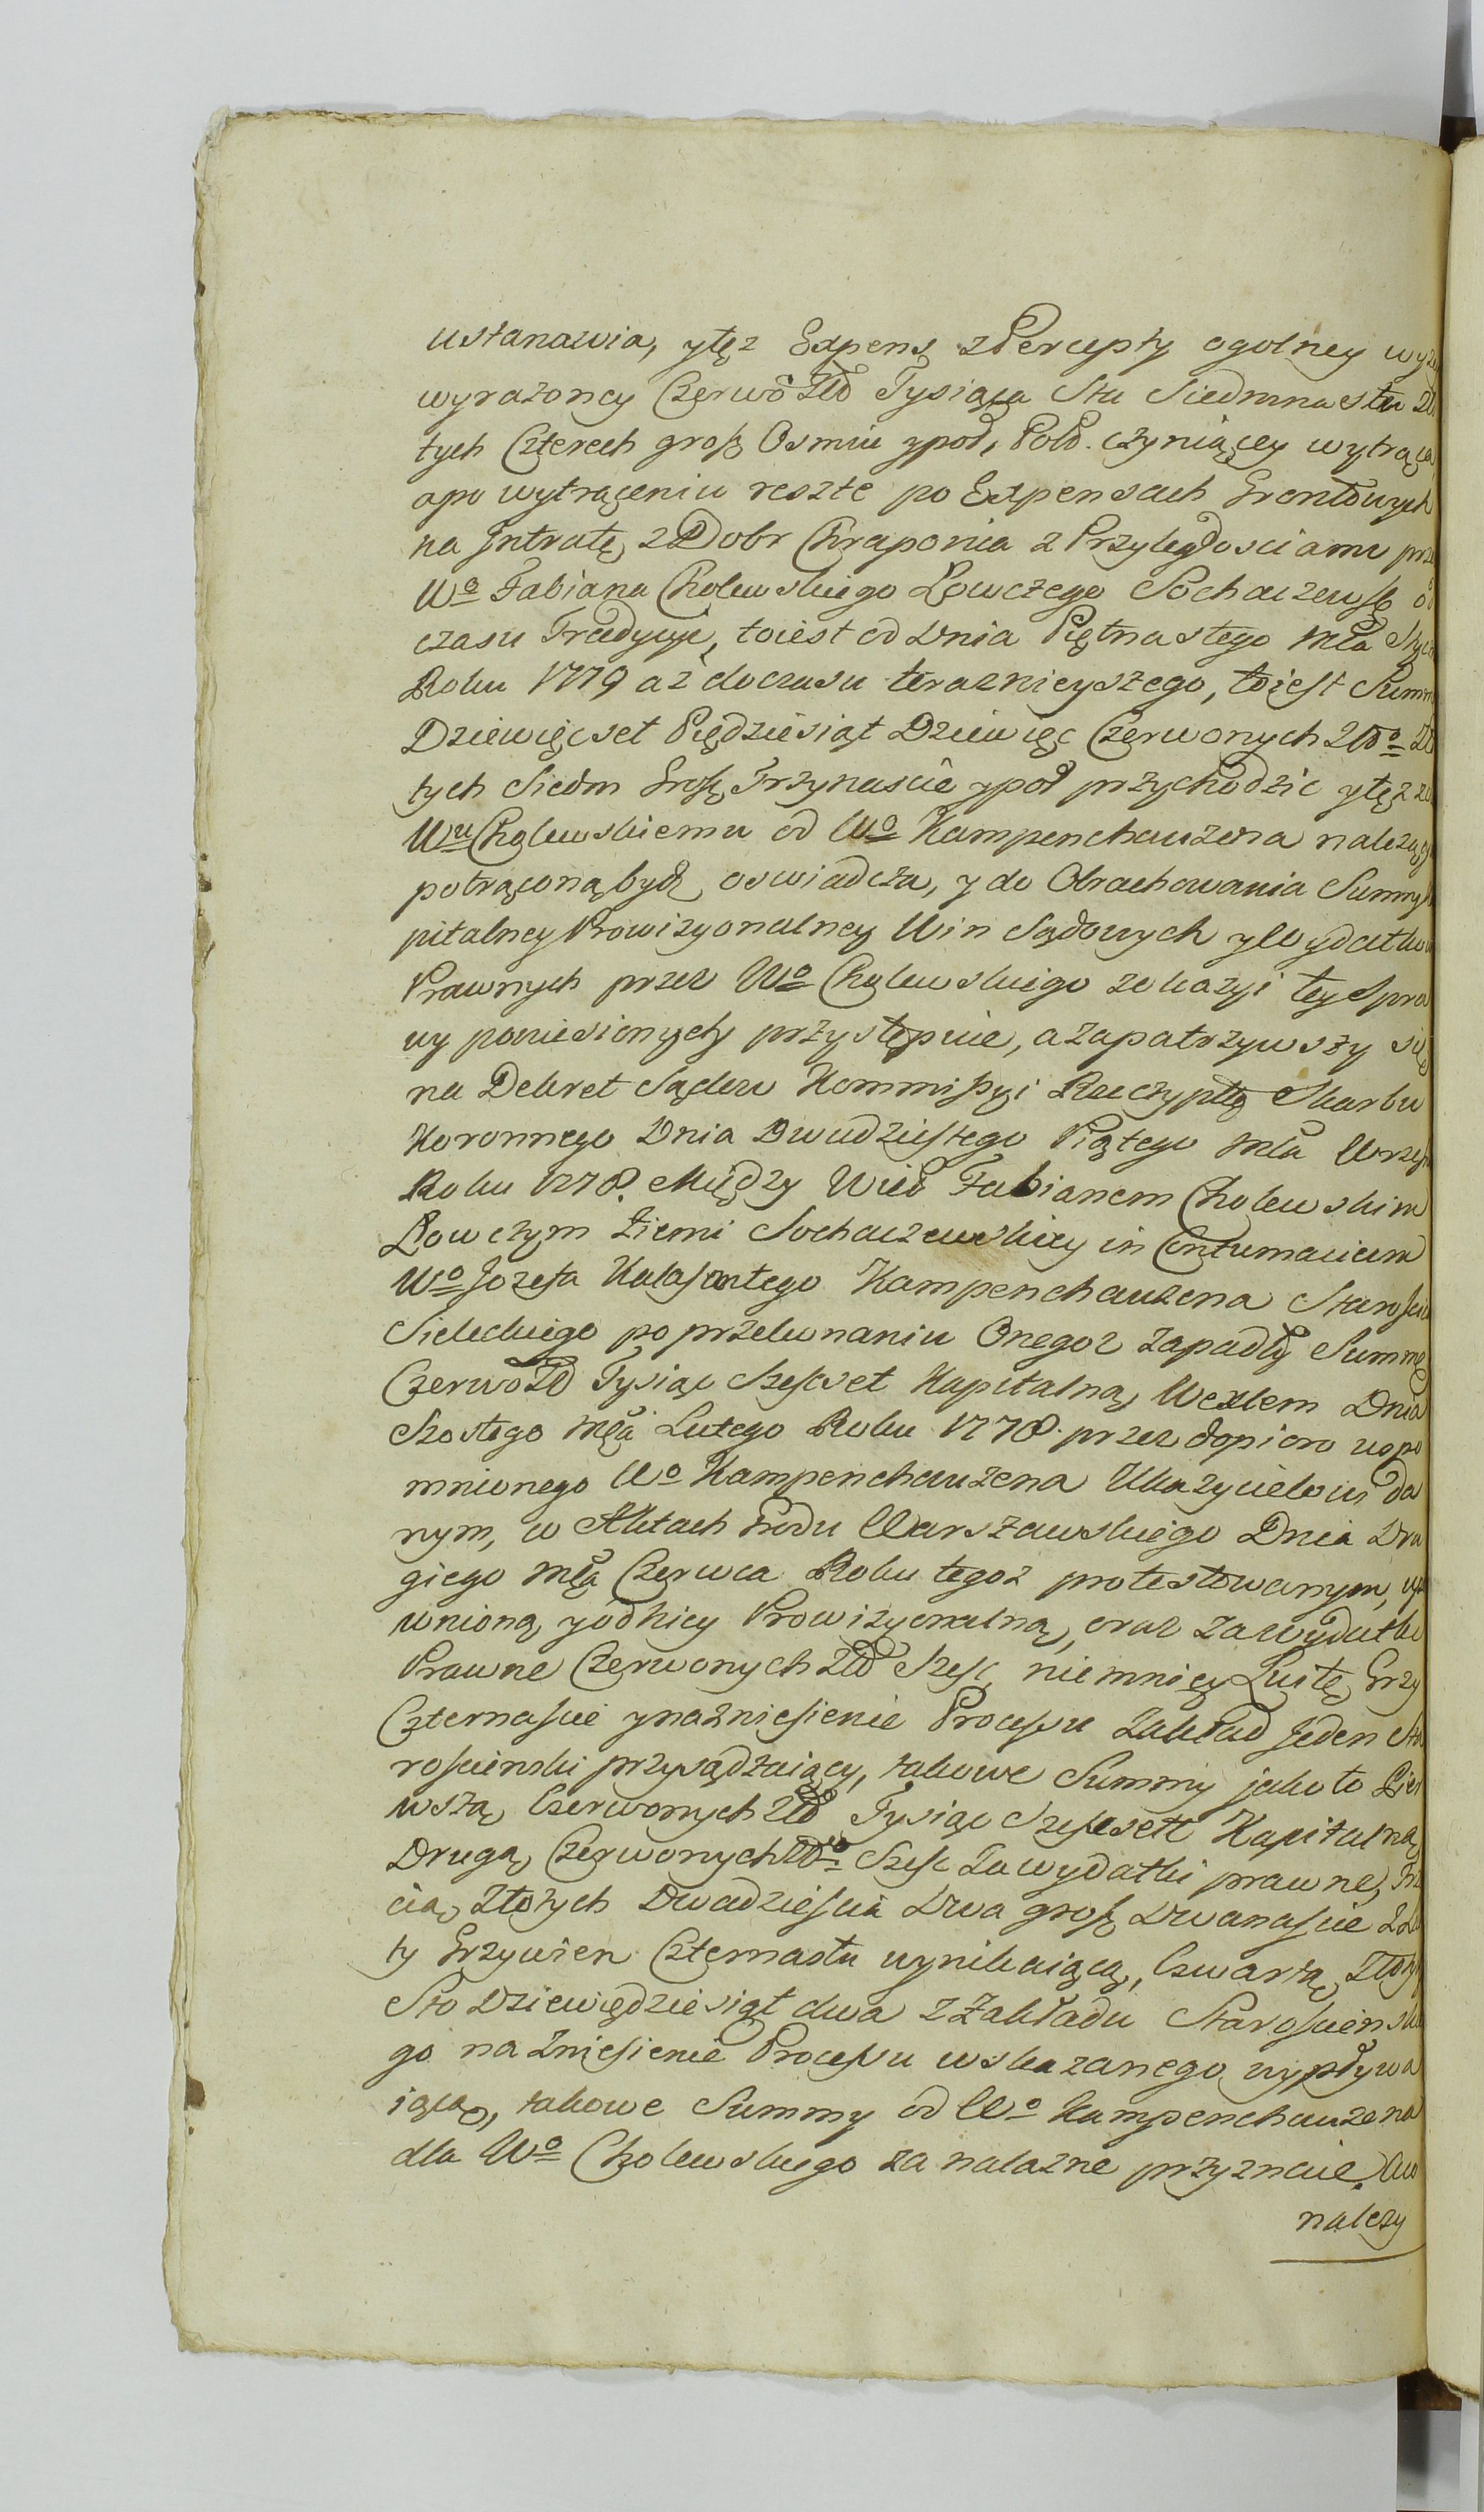 ustanawia, ytęz Expens z Percepty ogolney wyze
wyrażoney Czerwo Złł Tysiąca Sta Siedmnastu Zło
tych Czterech grosz Osmiu ypoł, Polo. czyniącey wytrąca
apo wytrąceniu reszte po Expensach Grontowych
na Intratę z Dobr Chraponia z Przyległosciami prze
Wo Fabiana Cholewskiego Łowczego Sochaczewsk od
czasu Tradycyi, toiest od Dnia Piętnastego Mca Stycz
Roku 1779 aż doczasu teraznieyszego, toiest Summ
Dziewięcset Pięдziesiąt Dziewięc Czerwonych Złło Zło
tych Siedm Grosz Trzynascie ypoł przychodzic ytęz za
Wu Cholewskiemu od Wo Kampenchauzena należąc
potrąconą bydz oswiadcza, y do Obrachowania Summy
pitalney Prowizyonalney Win Sądowych y Wydatkow
Prawnych przez Wo Cholewskiego zokazyi tey Spra
wy poniesionych przystępuie, azapatrzywszy się
na Dekret Sądów Kommissyi Rzeczyptey Skarbu
Koronnego Dnia Dwudziestego Piątego Mca Wrzes
Roku 1778. Między Wie Fabianem Cholewskim
Łowczym Ziemi Sochaczewskiey in Contumaciam
Wo Jozefa Kalasantego Kampenchauzena Starosci
Sieleckiego po przekonaniu Onegoz zapadły Summę
Czerwo Złł Tysiąc Szescset Kapitalną Wexlem Dnia
Szostego Mca Lutego Roku 1778. przez dopiero uspo
mnionego Wo Kampenchauzena Ukazycielowi da
nym, w Aktach Grodu Warszawskiego Dnia Dru
giego Mca Czerwca Roku tegoz protestowanym, up
wnioną yodniey Prowizyonalną, oraz zawydatki
Prawne Czerwonych Złł Szesc niemniey Luitę Grzy
Czternascie ynazniesienie Processu Zakład Jeden Sta
roscinski przysądzaiący, takowe Summy jako to Pier
wszą Czerwonych Złł Tysiąc Szescsett Kapitalną
Drugą Czerwonych Złło Szesc Zawydatki prawne, Trz
cią, Złotych Dwadziescia Dwa grosz Dwanascie z Lu
ty Grzywien Czternastu wynikaiącą, Czwartą, Złoty
Sto Dziewiędziesiąt dwa z Zakładu Staroscinsk
go na Zniesienie Processu wskazanego wypływa
iącą, takowe Summy od Wo Kampenchauzena
dla Wo Cholewskiego za nalazne przyznaie,
należy